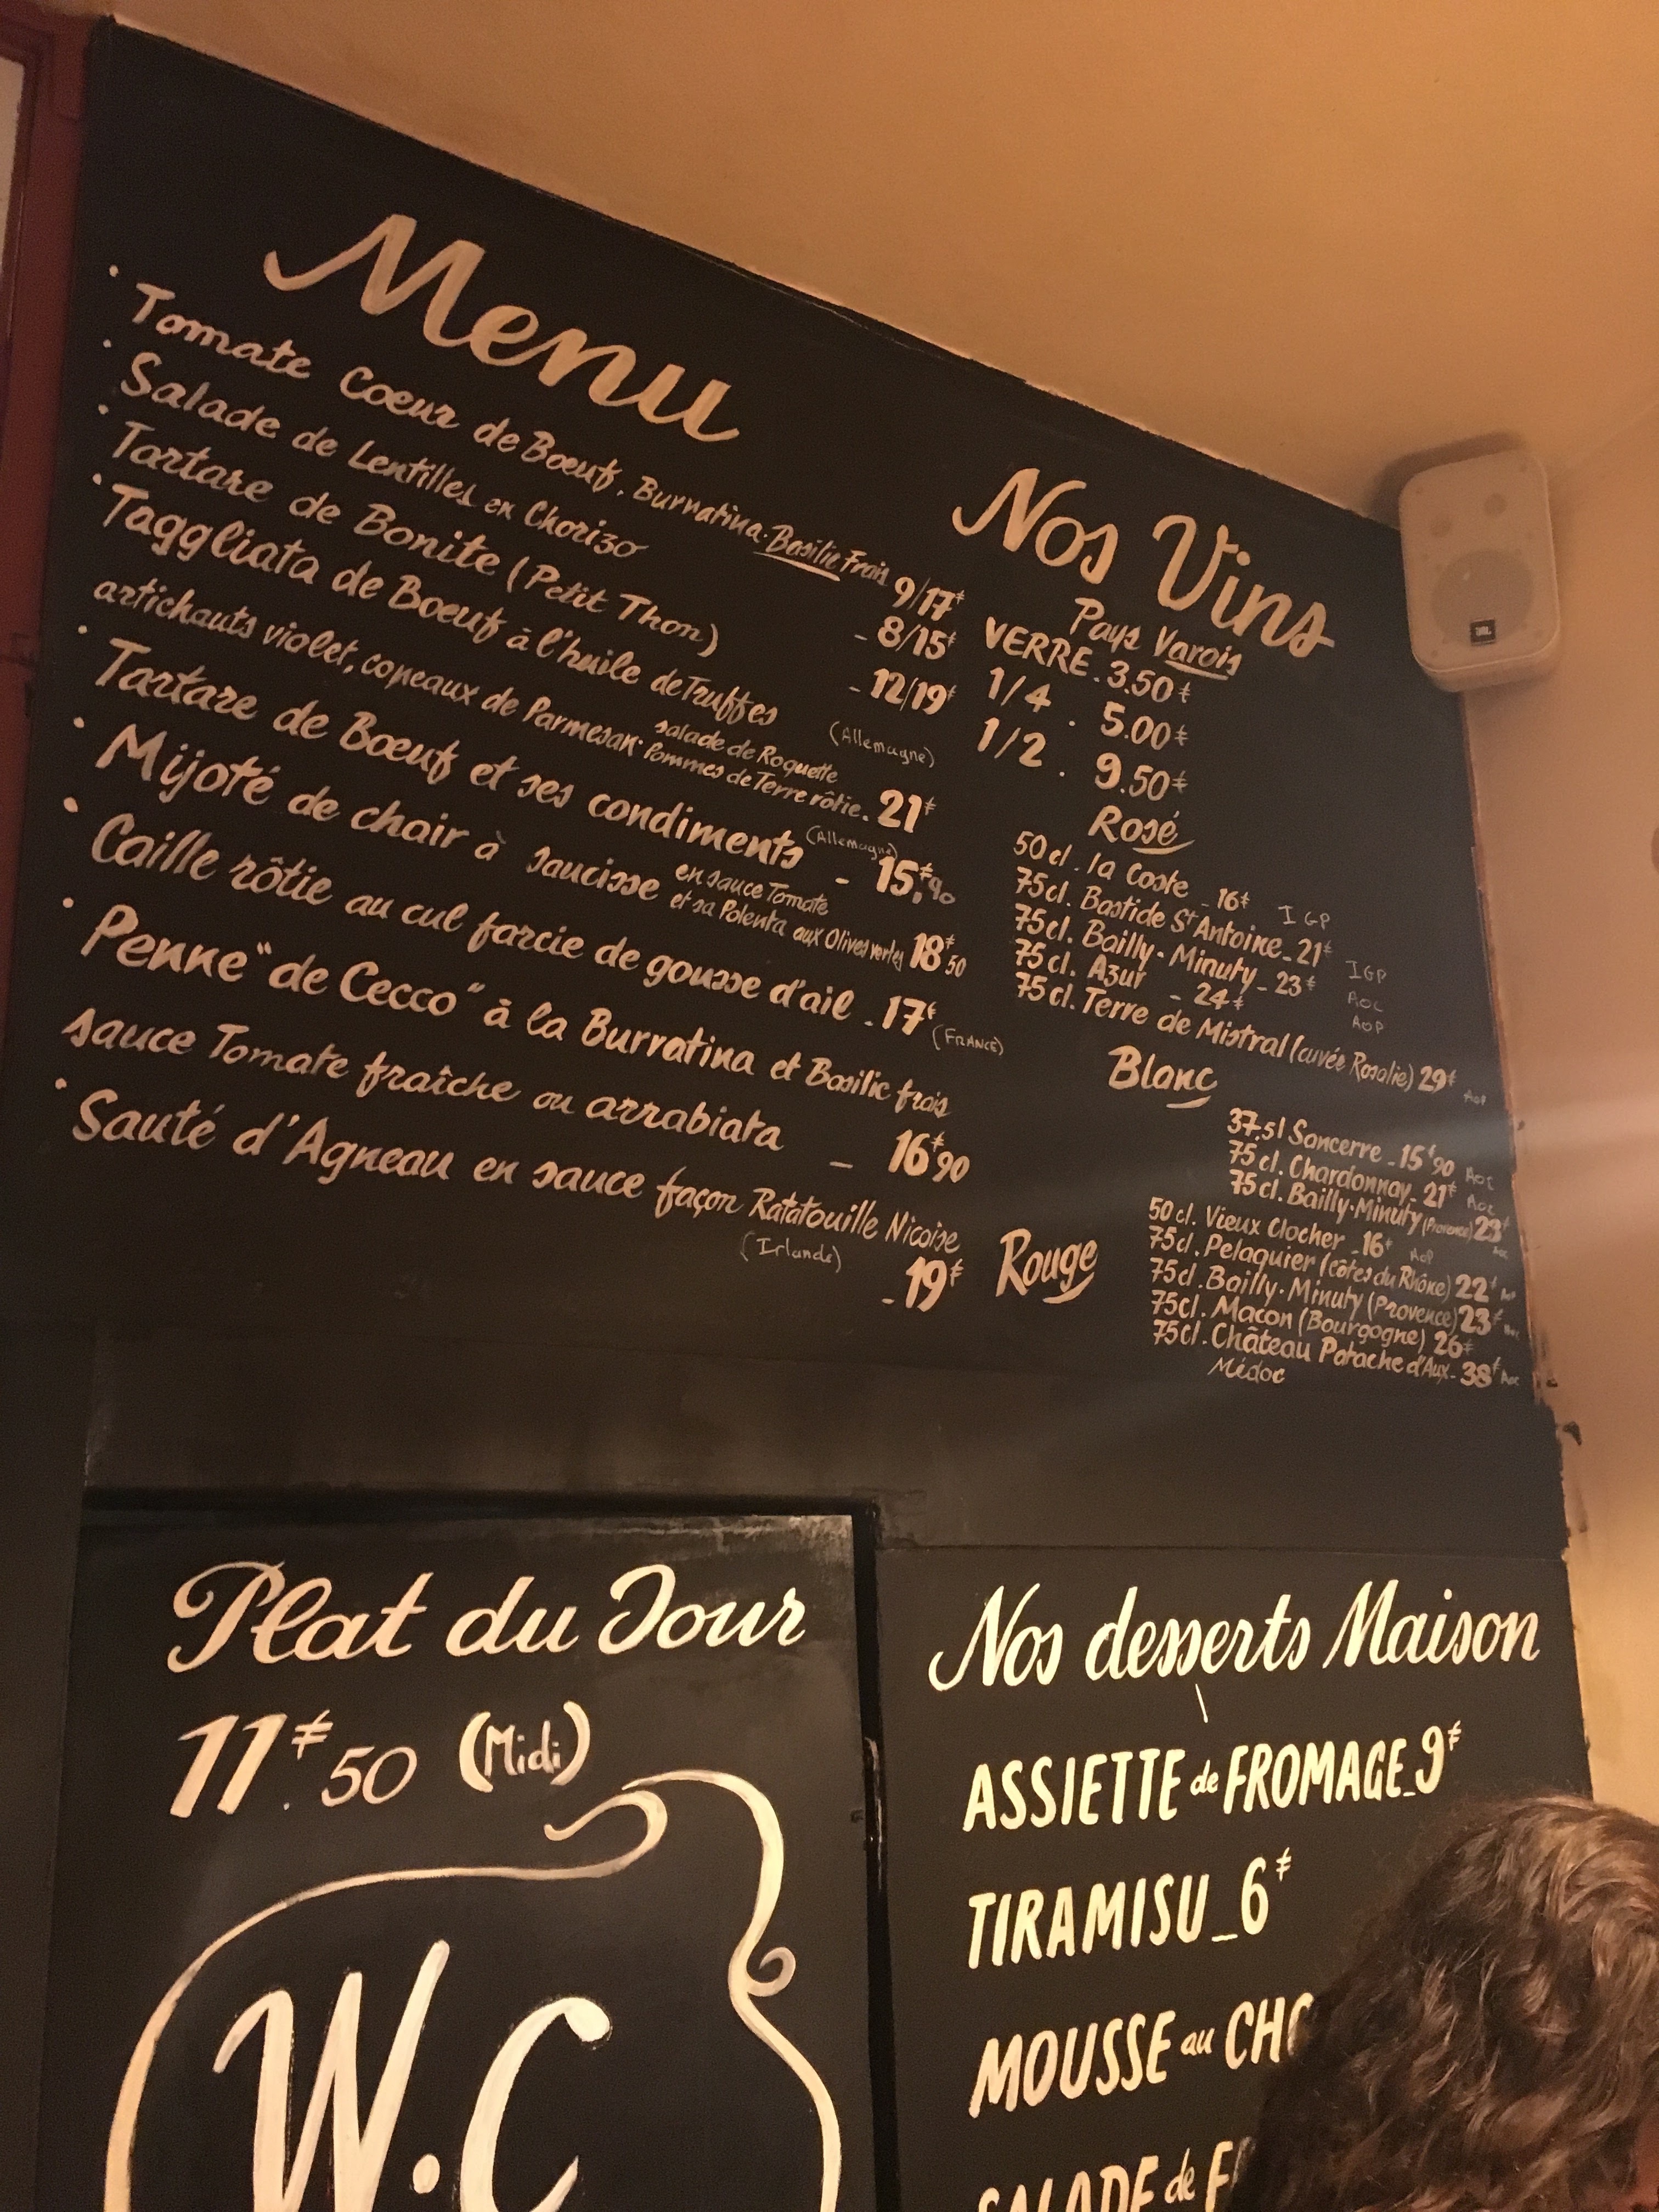 Menu
• Tomate Coeur de Boeuf, Burratina. Basilic Frais 9/17€
• Salade de Lentilles en Chorizo - 8/15€
• Tartare de Bonite (Petit Thon) - 12/19€
• Taggliata de Boeuf à l'huile de Truffes (Allemagne)
artichauts violet, copeaux de Parmesan. salade de Roquette
Pommes de Terre rôtie. 21€
• Tartare de Boeuf et ses condiments (Allemagne) - 15,€90
• Mijoté de chair à saucisse en sauce Tomate
et sa Polenta aux Olives vertes 18€50
• Caille rôtie au cul farcie de gousse d'ail - 17€ (FRANCE)
• Penne "de Cecco" à la Burratina et Basilic frais
sauce Tomate fraîche ou arrabiata - 16€90
• Sauté d'Agneau en sauce façon Ratatouille Nicoise
(Irlande)
- 19€
Nos Vins
Pays Varois
VERRE - 3.50€
1/4 . 5.00€
1/2 . 9.50€
Rosé
50cl. la Coste - 16€ IGP
75cl. Bastide St Antoine - 21€ IGP
75cl. Bailly. Minuty - 23€ AOC
75cl. Azur - 24€ AOP
75cl. Terre de Mistral (cuvée Rosalie) 29€ AOP
Blanc
37,5l Sancerre - 15€90 AOC
75cl. Chardonnay - 21€ AOC
75cl. Bailly. Minuty (Provence) 23€ AOC
Rouge
50cl. Vieux Clocher - 16€ AOP
75cl. Pelaquier (côtes du Rhône) 22€ AOP
75cl. Bailly. Minuty (Provence) 23€ AOC
75cl. Macon (Bourgogne) 26€
75cl. Château Patache d'Aux - 38€ AOC
Médoc
JBL
Plat du Jour
11€.50 (Midi)
W.C
Nos desserts Maison
ASSIETTE de FROMAGE_9€
TIRAMISU_6€
MOUSSE au
SALADE de